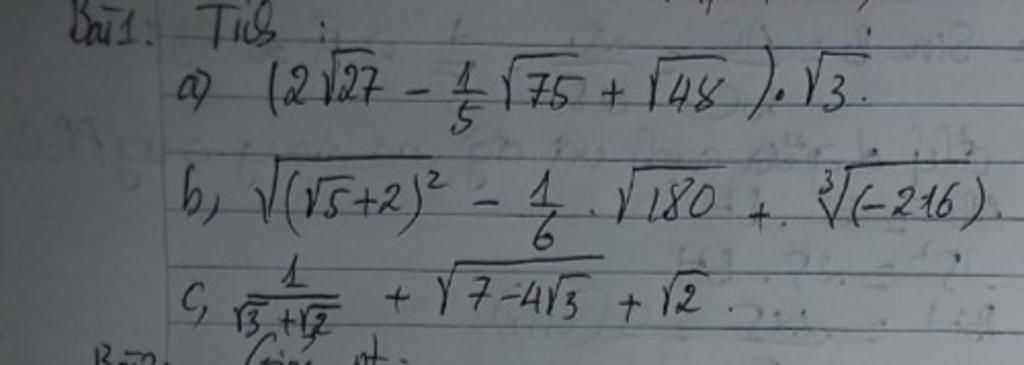 Bài 1: Tính :
a) (2√27 - 1/5 √75 + √48) . √3.
b, √((√5+2)²) - 1/6 . √180 + ∛(-216).
c, 1/(√3+√2) + √(7-4√3) + √2.